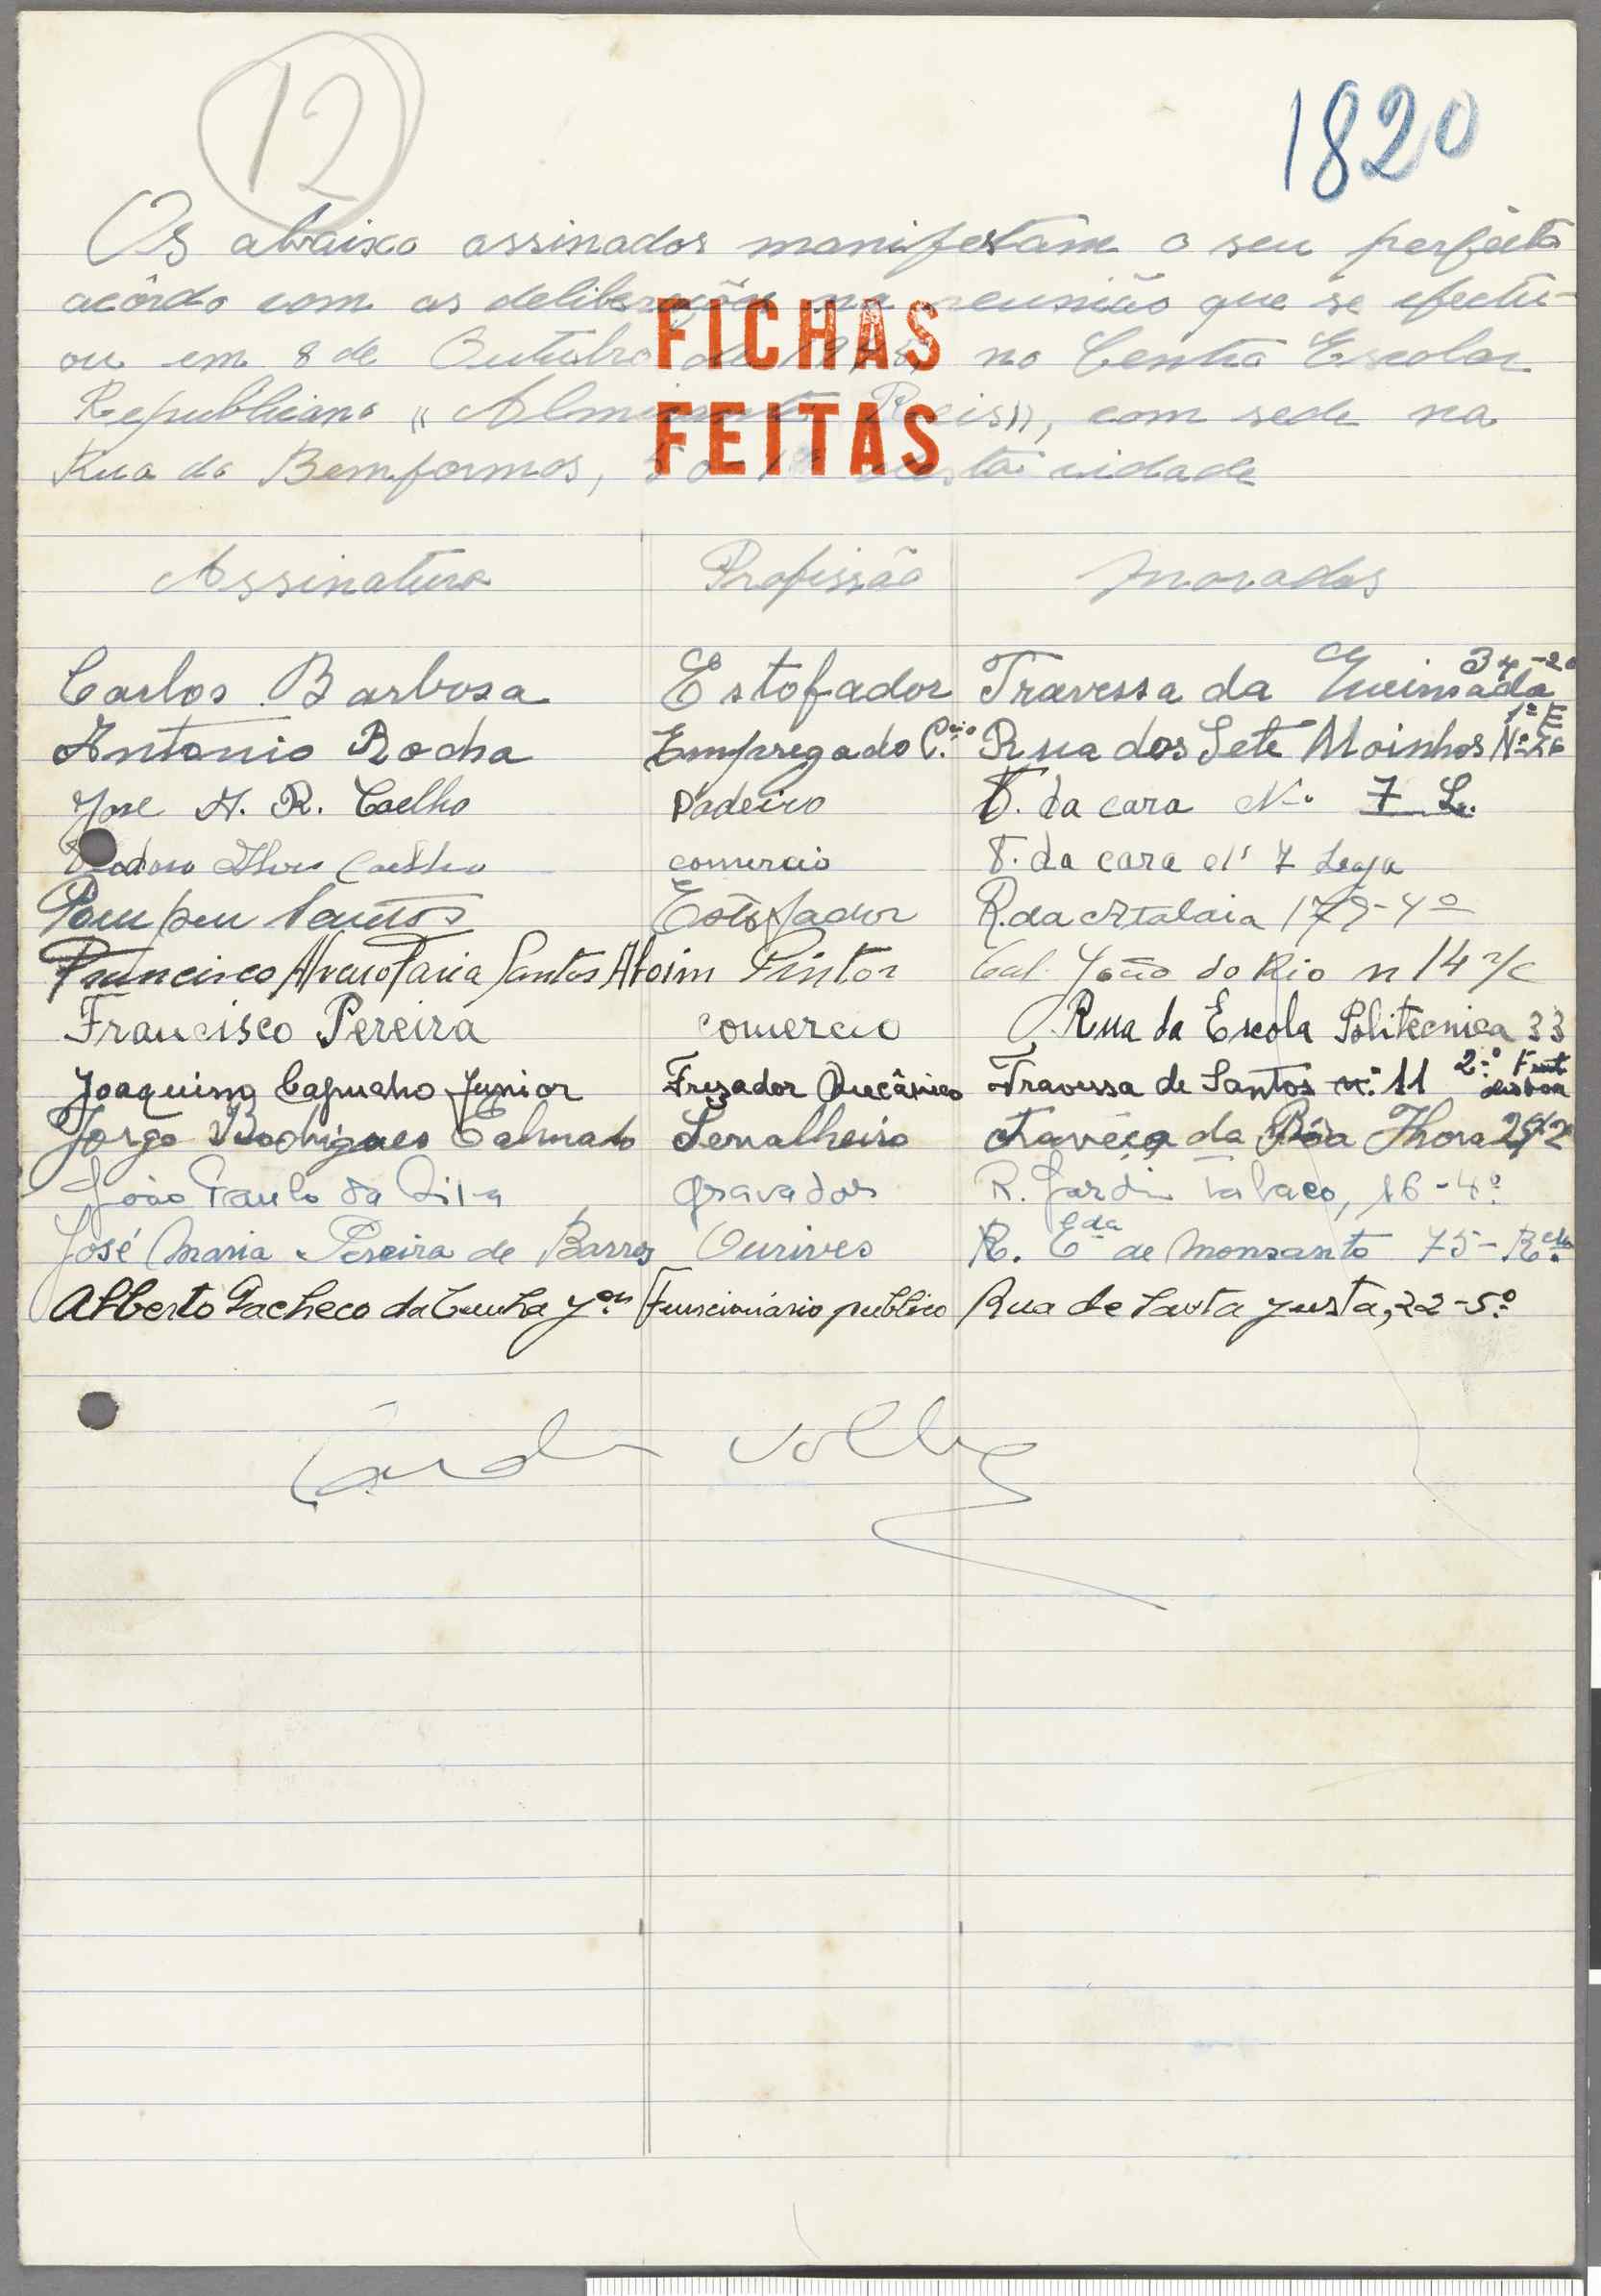 12
1820
Os abaixo assinados manifestam o seu perfeito
acôrdo com as deliberações na reunião que se efectu-
ou em 8 de Outubro de 1945, no Centro Escolar
Republicano "Almirante Reis", com sede na
Rua do Bemformoso, 50 1º nesta cidade
FICHAS
FEITAS
Assinatura Profissão Moradas
Carlos Barbosa Estofador Travessa da Queimada 34-2º
Antonio Rocha Empregado C. Rua dos Sete Moinhos Nº 26 1º E
José A. R. Coelho Padeiro T. da cara Nº 7 L.
Coelho comercio T. da cara nº 7 Loja
Pompeu Santos Estofador R. da Atalaia 175-4º
Francisco Alvaro Faria Santos Aboim Pintor Cal. João do Rio n 14 r/c
Francisco Pereira comercio Rua da Escola Politecnica 33
Joaquim Capucho Junior Frezador Mecânico Travessa de Santos n.º 11 2.º Frt Lisboa
Jorge Rodrigues Calmado Serralheiro Travéça da Bôa Hora
João Paulo da Silva gravador R. Jardim Tabaco, 16-4º
José Maria Pereira de Barros Ourives R. Cda de Monsanto 75-
Alberto Pacheco da Cunha Jor Funcionário publico Rua de Santa Justa, 22-5.º